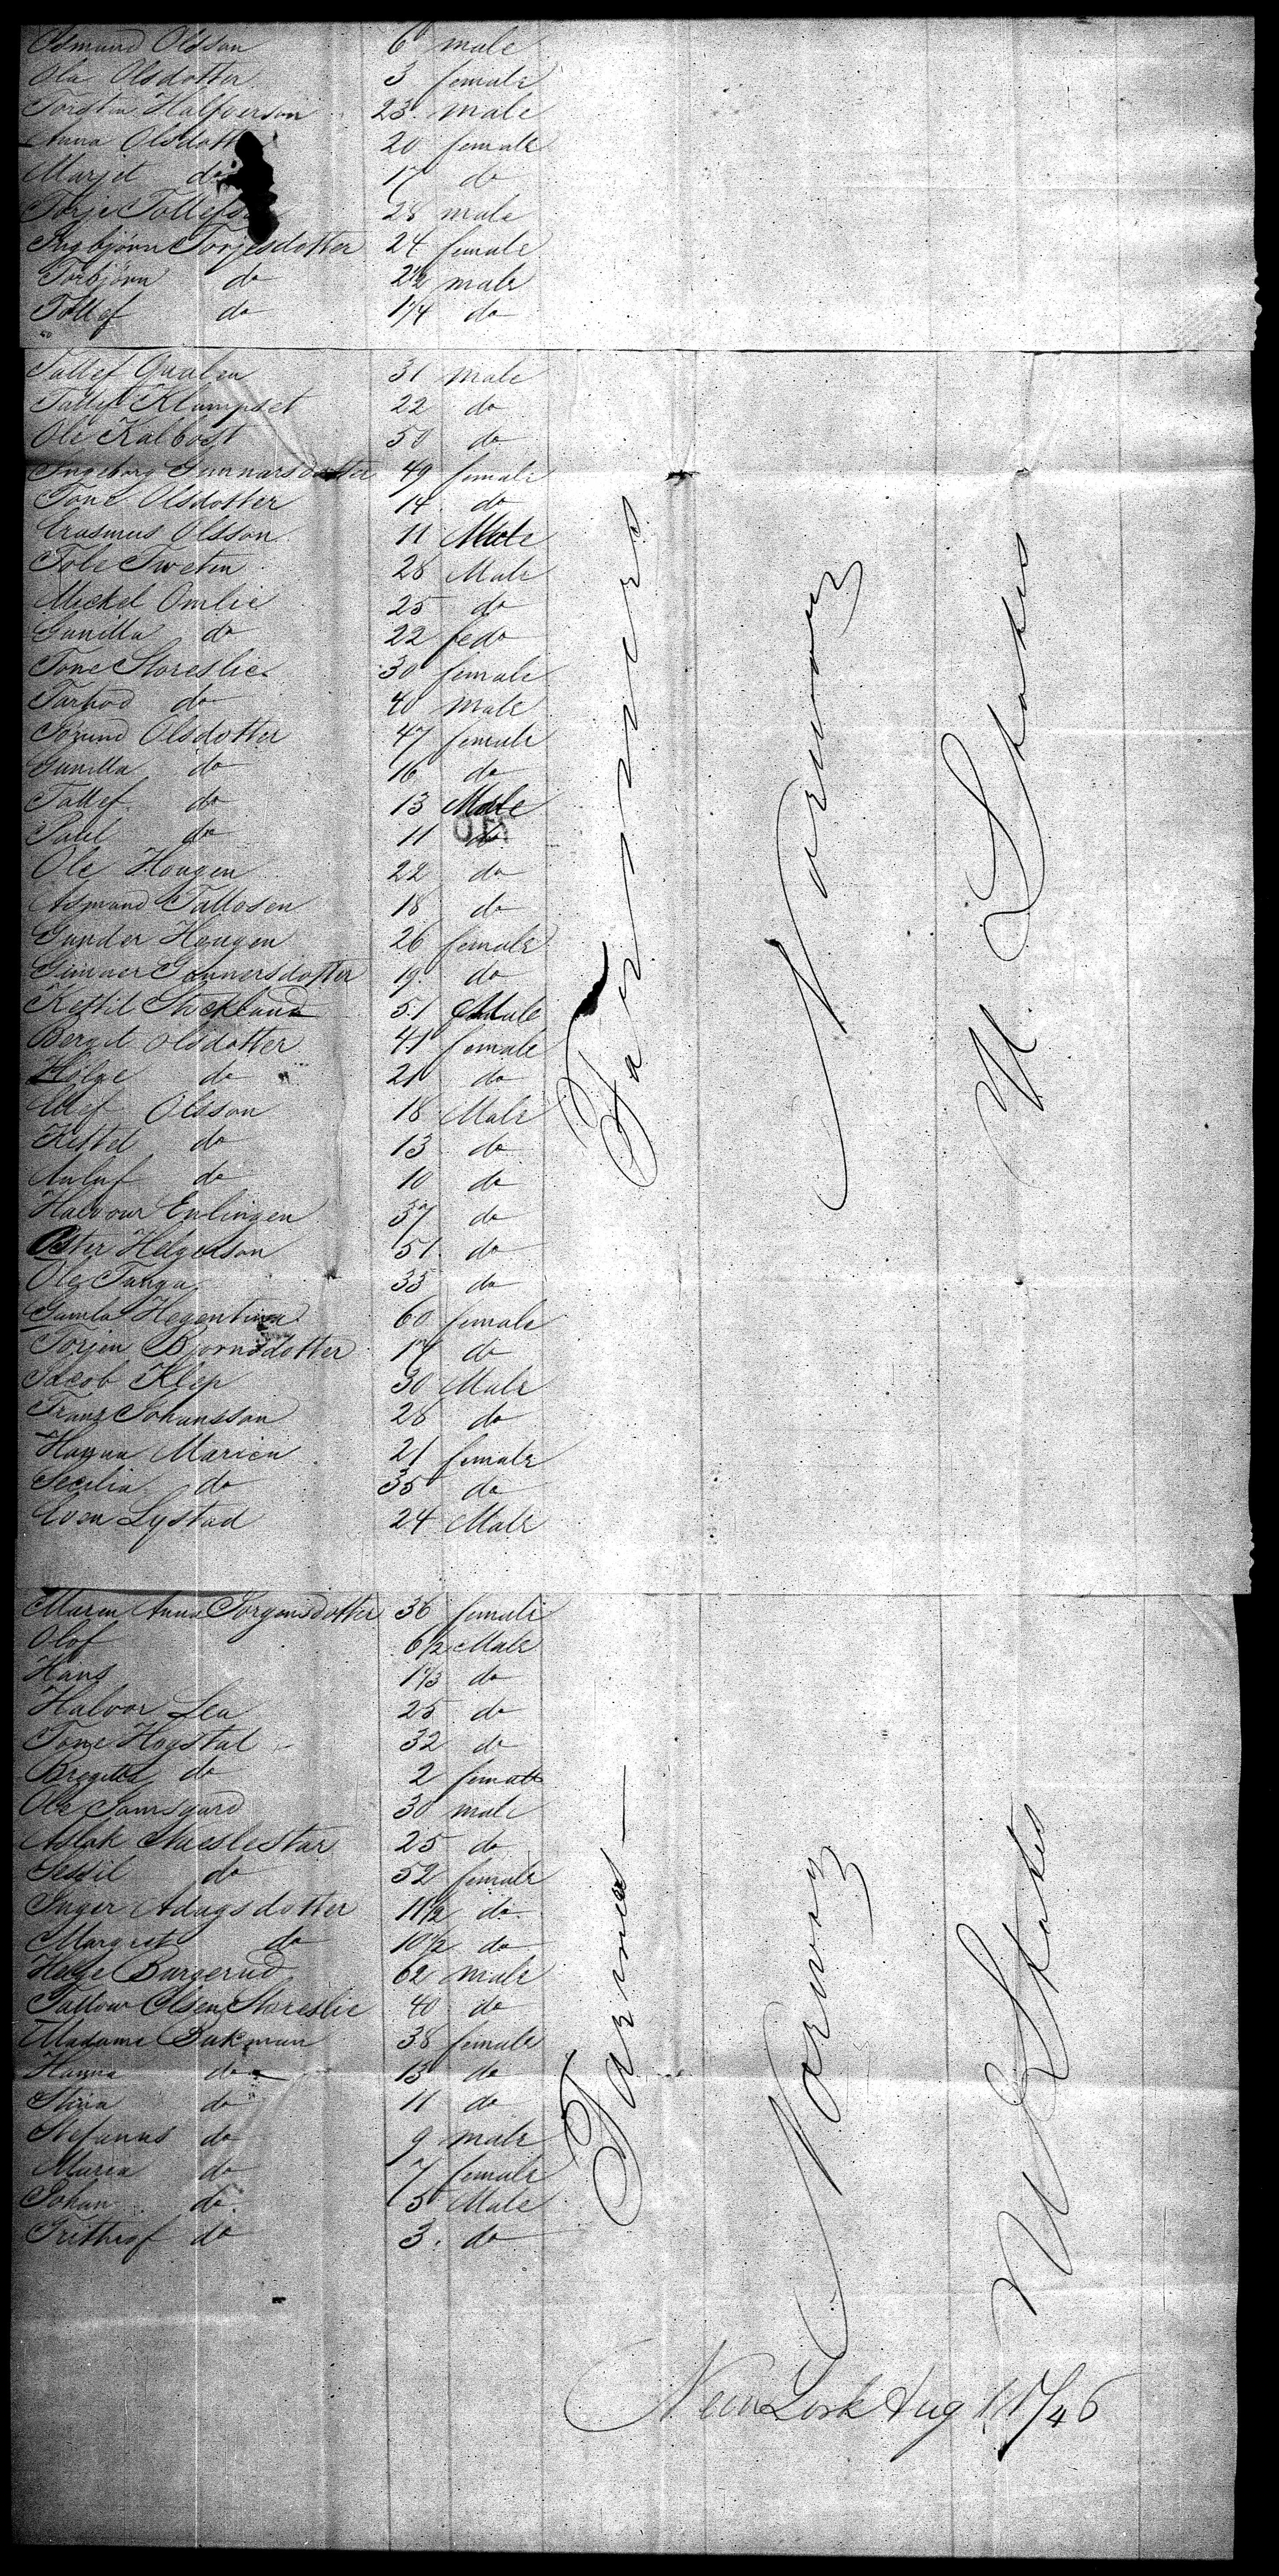 Asmund Olsson 6 male
Ola Olsdotter 3 female
Torsten Halfverson 23 male
Anna Olsdotter 20 female
Marjet do 17 do
Torje Tollefs 28 male
Ingbjörn Torjesdotter 24 female
Torbjörn do 2 1/2 male
Tollef do 1/4 do
Tallef Qualen 31 male
Tallef Klampset 22 do
Ole Kalbost 50 do
Ingeborg Gunnarsdotter 49 female
Tone Olsdotter 14 do
Erasmus Olsson 11 Male
Tole Tweten 28 Male
Mickel Omlie 25 do
Gunilla do 22 fedo
Tone Storeslie 30 female
Tarbod do 40 male
Jorund Olsdotter 47 female
Gunilla do 16 do
Tallef do 13 Male
Paul do 11 do
Ole Hougen 22 do
Asmund Tallosen 18 do
Gunder Hougen 26 female
Gunner Gonnersdotter 19 do
Kettil Stockland 51 Male
Bergit Olsdotter 41 female
Helge do 21 do
Olef Olsson 18 Male
Kittel do 13 do
Anluf do 10 do
Halvour Enlingen 37 do
Oster Helgesson 51 do
Ole Tanga 33 do
Gamla Hegentina 60 female
Torjen Bjornsdotter 17 do
Jacob Klep 30 Male
Franz Johansson 28 do
Hanna Marien 21 female
Secilia do 35 do
Even Lystad 24 Male
Farmers
Norway
U States
Maren Anna Jorgensdotter 36 female
Olof 6 1/2 Male
Hans 1 1/3 do
Halvor Lea 25 do
Tone Hogstul 32 do
Bregitta do 2 female
Ole Samsgard 30 male
Aslak Staeslestar 25 do
Sessil do 52 female
Inger Adagsdotter 11 1/2 do
Margret do 10 1/2 do
Helge Burgerud 62 male
Tallow Olsen Storeslie 40 do
Madame Bakman 38 female
Hanna do 13 do
Stina do 11 do
Stefanus do 9 male
Maria do 7 female
Johan do 5 Male
Frithiof do 3 do
Farmers
Norway
U States
New York Aug 11/46